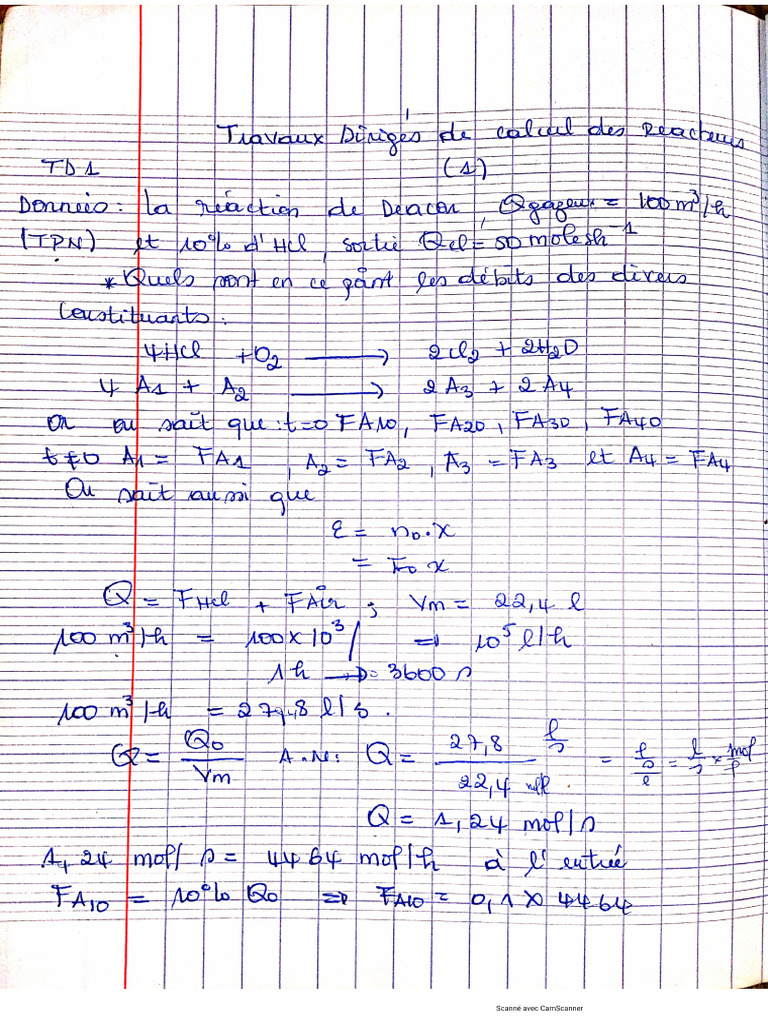 Travaux Dirigés de calcul des Réacteurs
TD1 (1)
Données: La réaction de Deacon, Qgazeux = 100 m³/h
(TPN) et 10% d'Hcl, sortie Qcl = 50 moles h⁻¹
* Quels sont en ce point les débits des divers
Constituants:
4Hcl + O₂ → 2Cl₂ + 2H₂O
4 A1 + A2 → 2A3 + 2 A4
On on sait que: t=0 FA10, FA20, FA30, FA40
t≠0 A1 = FA1, A2 = FA2, A3 = FA3 et A4 = FA4
On sait aussi que
ε = n₀.x
= F₀ x
Q = FHcl + FAir ; Vm = 22,4 l
100 m³/h = 100x10³/ ⇒ 10⁵ l/h
1h → 3600 s
100 m³/h = 27,8 l/s.
Q = Q₀/Vm A.N: Q = 27,8 l/s / 22,4 = l/s/l = l/s × mol/l
Q = 1,24 mol/s
1,24 mol/s = 4464 mol/h à l'entrée
FA10 = 10% Q₀ ⇒ FA10 = 0,1 x 4464
Scanné avec CamScanner